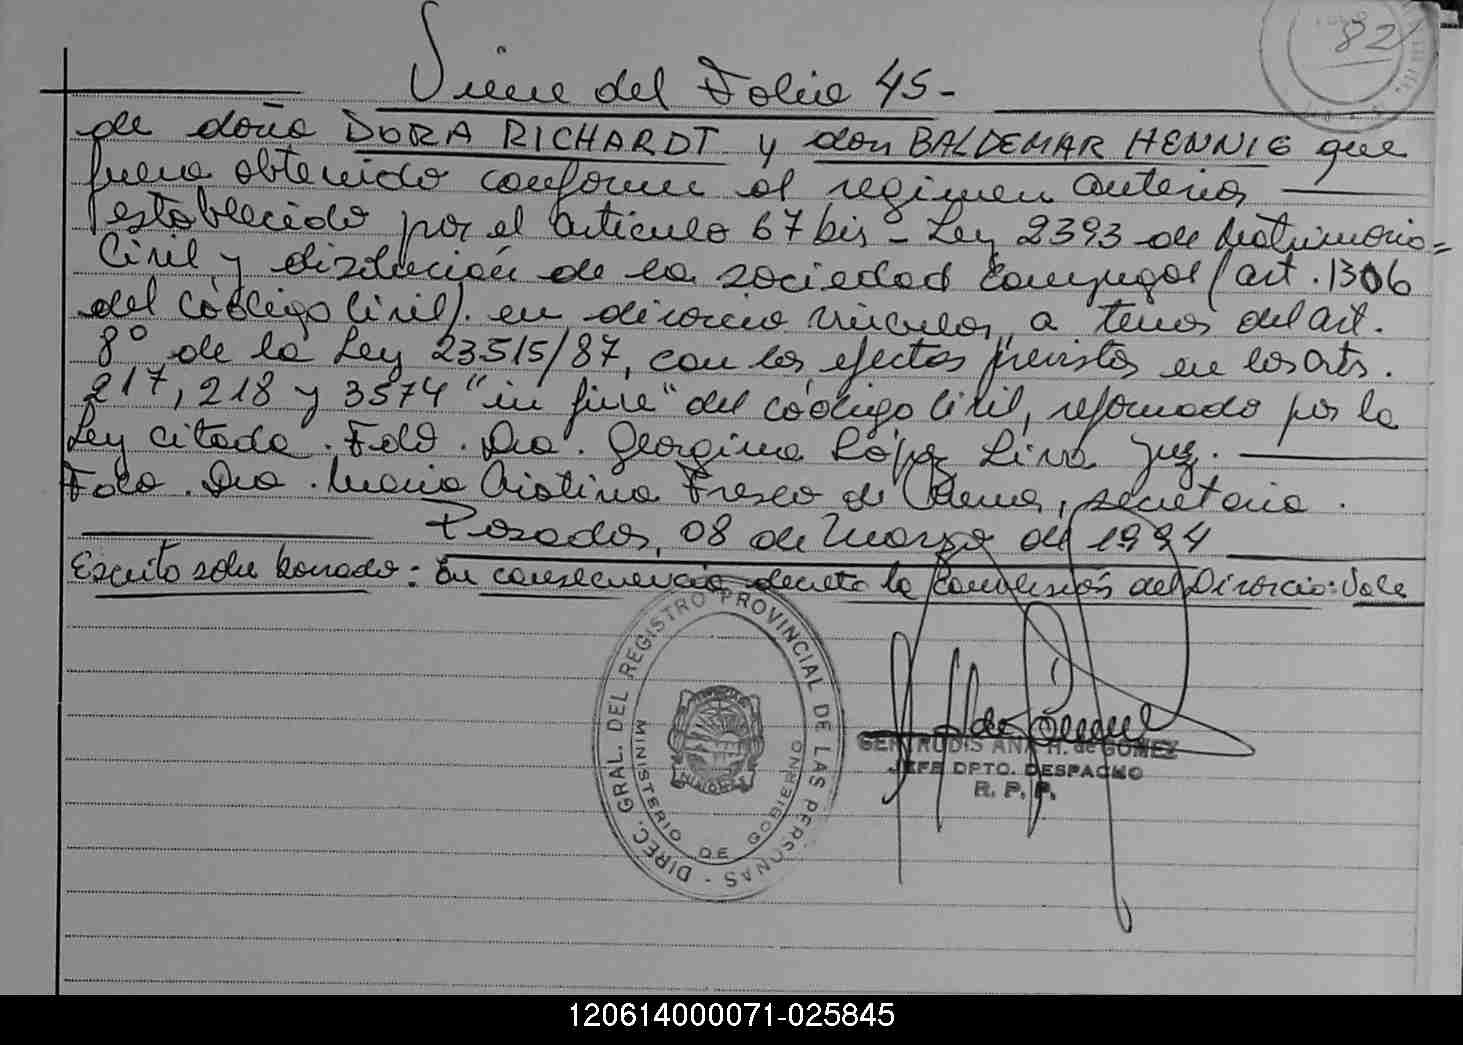 82
Viene del Folio 45-
de doña DORA RICHARDT y don BALDEMAR HENNIG que
fuera obtenido conforme al regimen anterior
establecido por el artículo 67 bis - Ley 2393 de Matrimonio=
Civil y disolución de la sociedad conyugal (art. 1306
del código Civil). en divorcio vincular, a tenor del art.
8º de la Ley 23515/87, con los efectos previstos en los arts.
217, 218 y 3574 "in fine" del código Civil, reformado por la
Ley citada. Fdo. Dra. Georgina López Liva Juez.
Fdo. Dra. María Cristina Fresco de , secretaria.
Posadas, 08 de Marzo de 1994
Escrito sobre borrado: En consecuencia decreto la conversión del Divorcio: Vale
DIREC. GRAL. DEL REGISTRO PROVINCIAL DE LAS PERSONAS -
MINISTERIO DE GOBIERNO
MISIONES
GERTRUDIS ANA H. de GOMEZ
JEFE DPTO. DESPACHO
R. P. P.
120614000071-025845